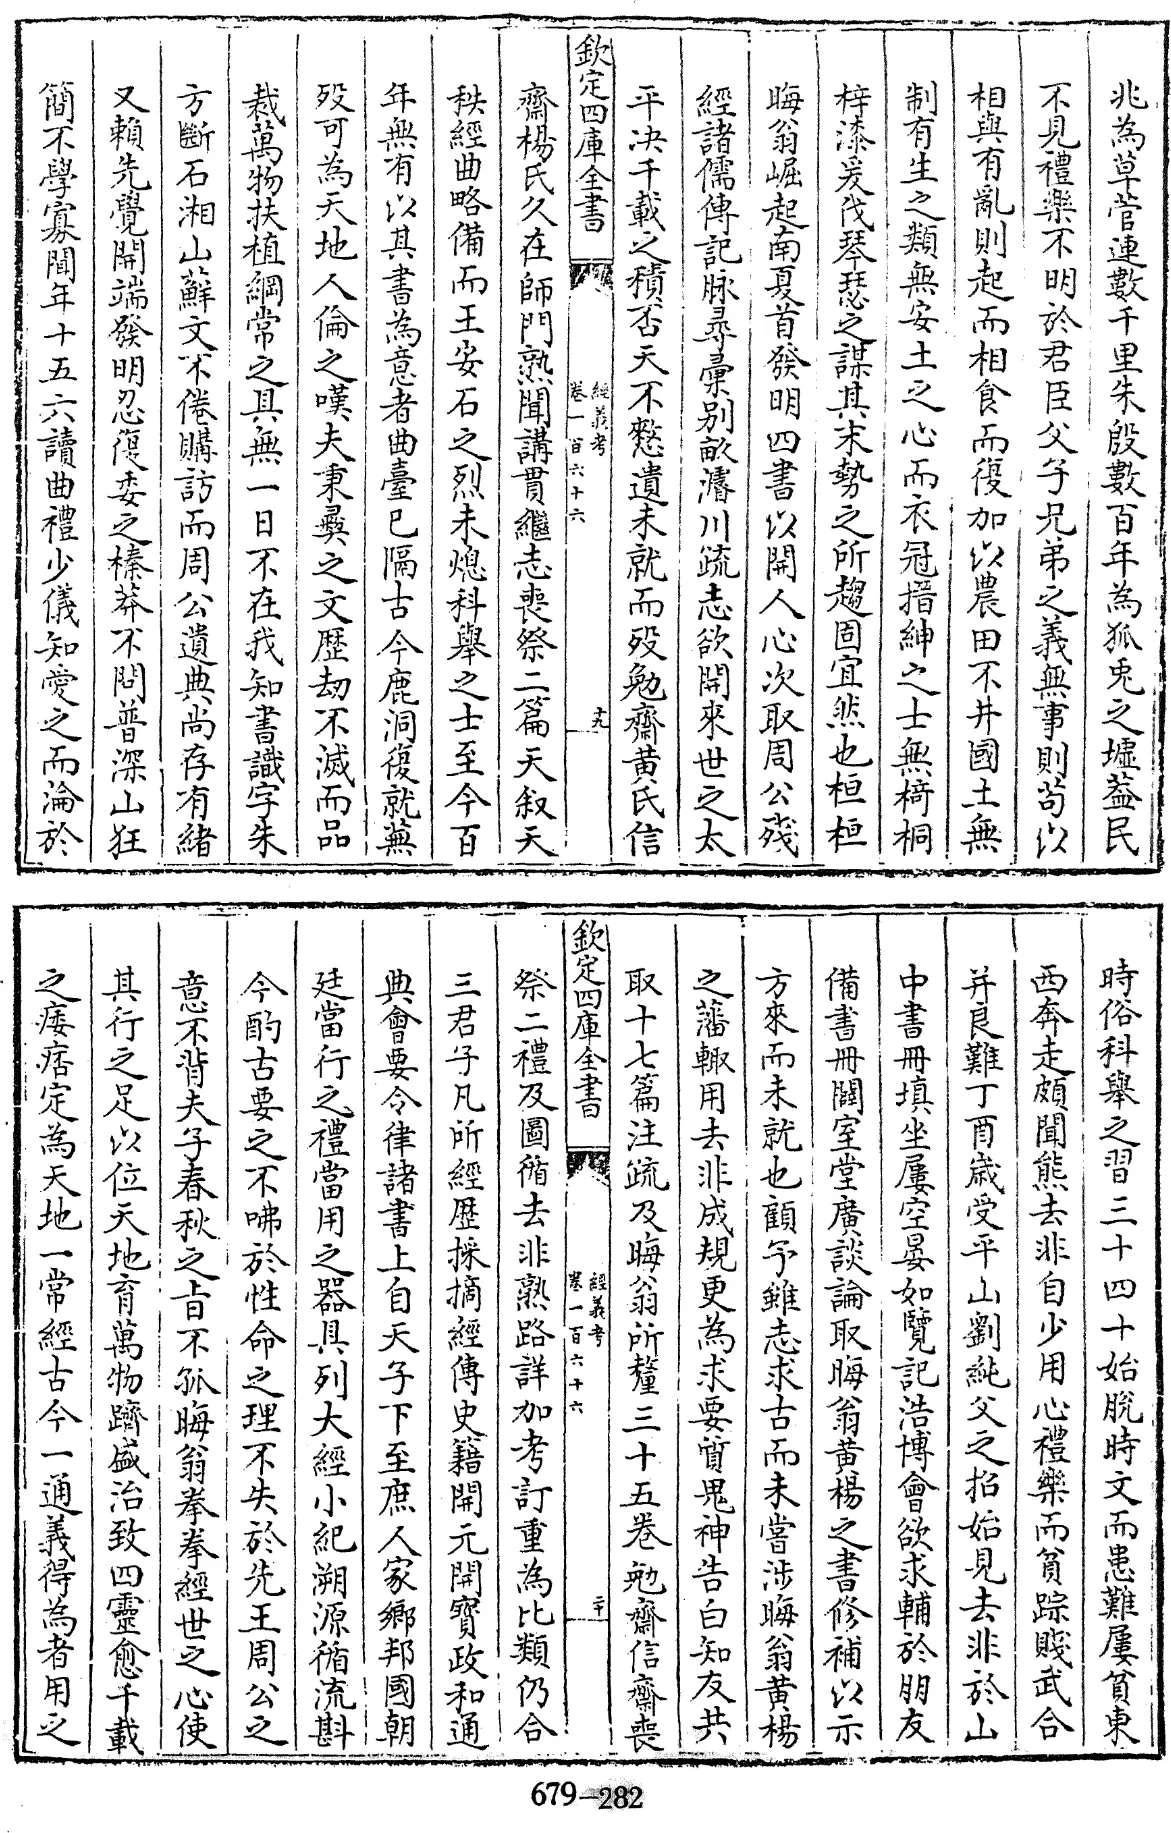 兆為草菅連數千里朱殷數百年為狐兎之墟葢民
不見禮樂不明於君臣父子兄弟之義無事則苟以
相與有亂則起而相食而復加以農田不井國土無
制有生之類無安土之心而衣冠搢紳之士無椅桐
梓漆爰伐琴瑟之謀其末勢之所趨固宜然也桓桓
晦翁崛起南夏首發明四書以開人心次取周公殘
經諸儒傳記脉尋彚别畝濬川疏志欲開來世之太
平决千載之積否天不憗遺未就而殁勉齋黄氏信
欽定四庫全書
經義考
卷一百六十六
十九
齋楊氏久在師門熟聞講貫繼志喪祭二篇天叙天
秩經曲略備而王安石之烈未熄科舉之士至今百
年無有以其書為意者曲臺已隔古今鹿洞復就蕪
殁可為天地人倫之嘆夫秉彞之文歴劫不滅而品
裁萬物扶植綱常之具無一日不在我知書識字朱
方斷石湘山蘚文不倦購訪而周公遺典尚存有緒
又賴先覺開端發明忍復委之榛莽不問普深山狂
簡不學寡聞年十五六讀曲禮少儀知愛之而淪於
時俗科舉之習三十四十始脫時文而患難屢貧東
西奔走頗聞熊去非自少用心禮樂而貧踪賤武合
并良難丁酉嵗受平山劉純父之招始見去非於山
中書冊填坐屢空晏如覽記浩博會欲求輔於朋友
備書冊闢室堂廣談論取晦翁黄楊之書修補以示
方來而未就也顧予雖志求古而未嘗涉晦翁黄楊
之藩輙用去非成規更為求要質鬼神告白知友共
取十七篇注疏及晦翁所釐三十五卷勉齋信齋喪
欽定四庫全書
經義考
卷一百六十六
二十
祭二禮及圖循去非熟路詳加考訂重為比類仍合
三君子凡所經歴採摘經傳史籍開元開寶政和通
典會要令律諸書上自天子下至庶人家鄉邦國朝
廷當行之禮當用之器具列大經小紀溯源循流斟
今酌古要之不咈於性命之理不失於先王周公之
意不背夫子春秋之旨不孤晦翁拳拳經世之心使
其行之足以位天地育萬物躋盛治致四靈愈千載
之痿痞定為天地一常經古今一通義得為者用之
679-282